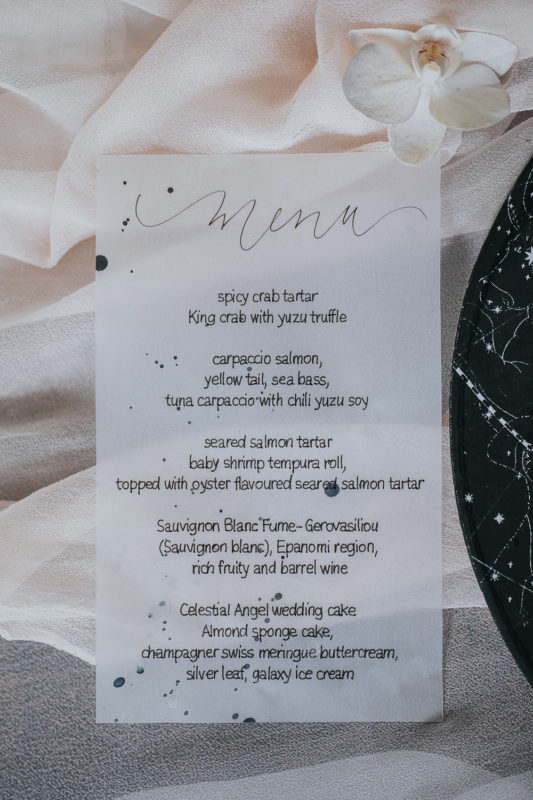 menu
spicy crab tartar
King crab with yuzu truffle
carpaccio salmon,
yellow tail, sea bass,
tuna carpaccio with chili yuzu soy
seared salmon tartar
baby shrimp tempura roll,
topped with oyster flavoured seared salmon tartar
Sauvignon Blanc Fume- Gerovasiliou
(Sauvignon blanc), Epanomi region,
rich fruity and barrel wine
Celestial Angel wedding cake
Almond sponge cake,
champagner swiss meringue buttercream,
silver leaf, galaxy ice cream